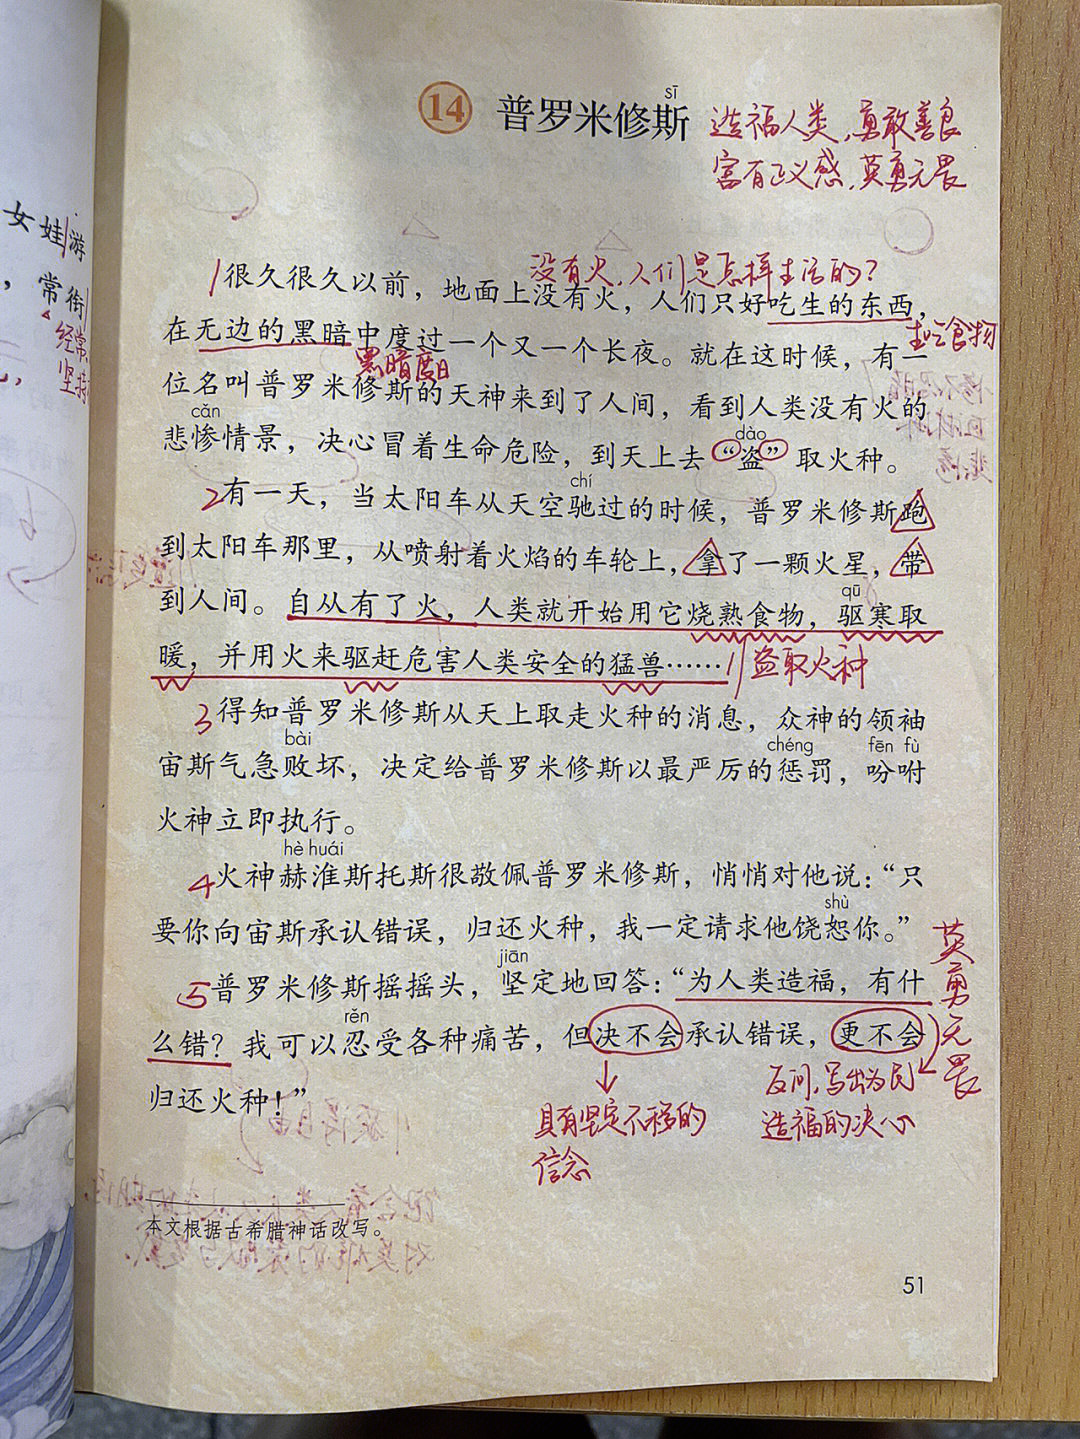 女娃游
，常衔
经常
坚持
14 普罗米修斯
sī
造福人类，勇敢善良
富有正义感，英勇无畏
没有火，人们是怎样生活的？
1很久很久以前，地面上没有火，人们只好吃生的东西，
生吃食物
在无边的黑暗中度过一个又一个长夜。就在这时候，有一
黑暗度日
位名叫普罗米修斯的天神来到了人间，看到人类没有火的
cǎn
悲惨情景，决心冒着生命危险，到天上去“盗”取火种。
dào
chí
2有一天，当太阳车从天空驰过的时候，普罗米修斯跑
到太阳车那里，从喷射着火焰的车轮上，拿了一颗火星，带
qū
到人间。自从有了火，人类就开始用它烧熟食物，驱寒取
暖，并用火来驱赶危害人类安全的猛兽……
盗取火种
3得知普罗米修斯从天上取走火种的消息，众神的领袖
bài chéng fēn fù
宙斯气急败坏，决定给普罗米修斯以最严厉的惩罚，吩咐
火神立即执行。
hè huái
4火神赫淮斯托斯很敬佩普罗米修斯，悄悄对他说：“只
shù
要你向宙斯承认错误，归还火种，我一定请求他饶恕你。”
jiān
5普罗米修斯摇摇头，坚定地回答：“为人类造福，有什
rěn
么错？我可以忍受各种痛苦，但决不会承认错误，更不会
归还火种！”
英勇无畏
具有坚定不移的
信念
反问，写出为民
造福的决心
本文根据古希腊神话改写。
51